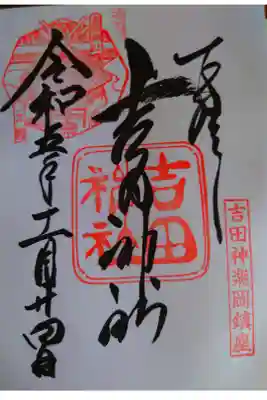 奉拝
吉田神社
吉田神社
吉田神楽岡鎮座
令和五年十二月廿四日